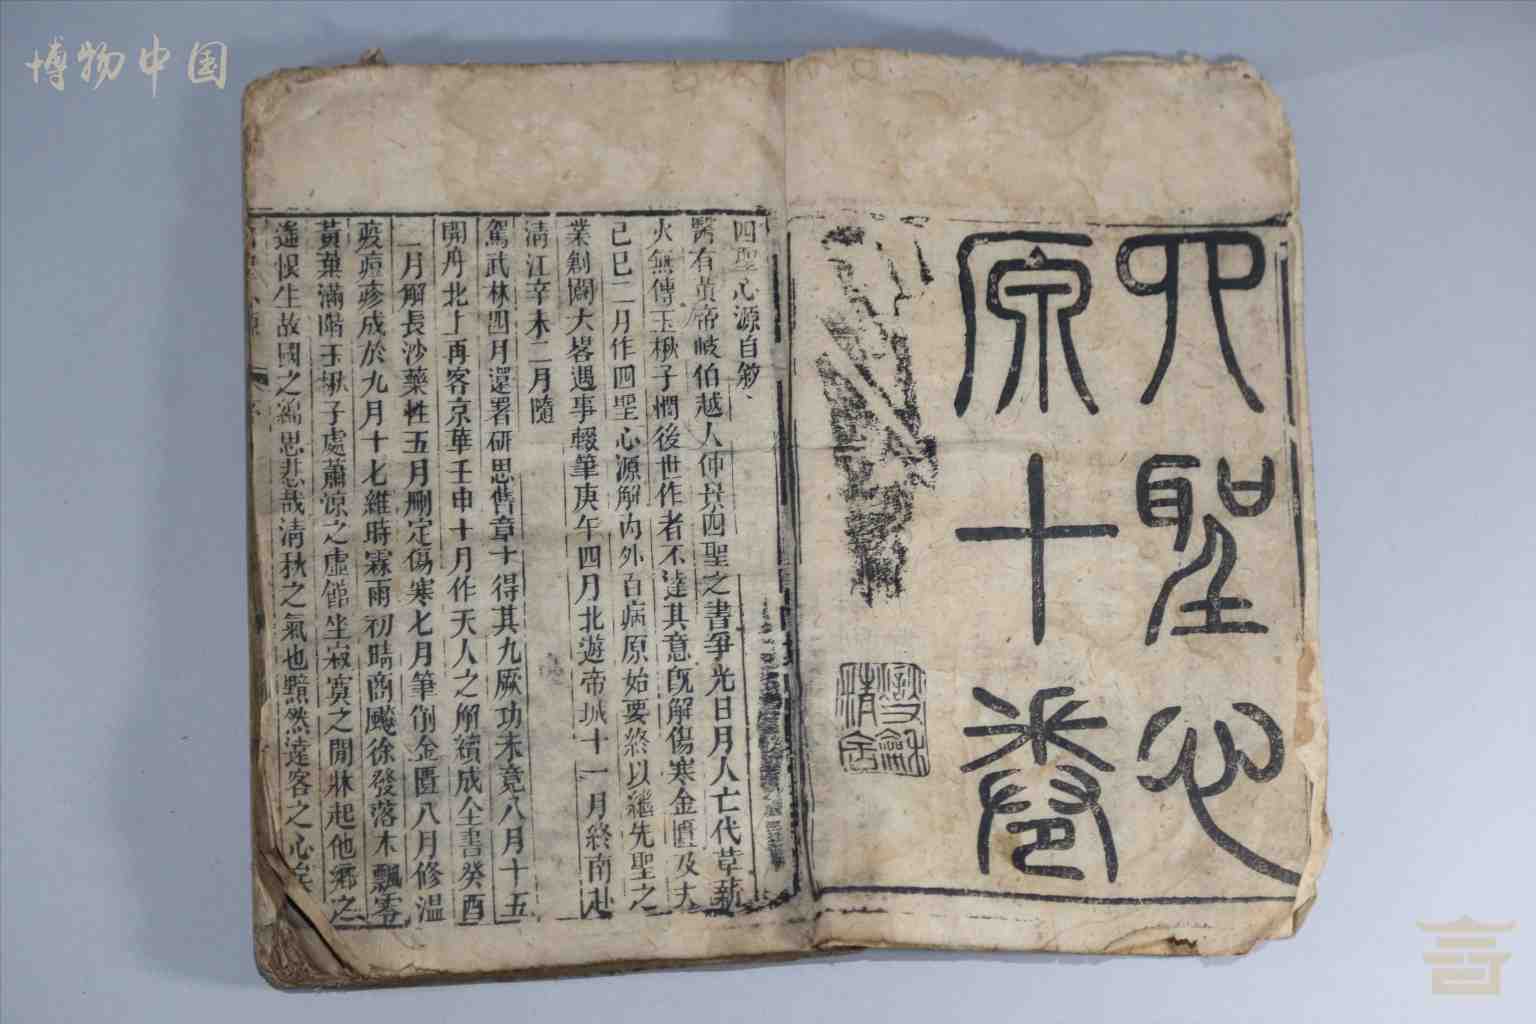 博物中国
四聖心
原十卷
燮龢
精舍
四聖心源自敘
醫有黃帝岐伯越人仲景四聖之書爭光日月人亡代革薪
火無傳玉楸子憫後世作者不達其意旣解傷寒金匱及大
己巳二月作四聖心源解內外百病原始要終以繼先聖之
業創闢大畧遇事輟筆庚午四月北遊帝城十一月終南赴
淸江辛未二月隨
駕武林四月還署研思舊章十得其九厥功未竟八月十五
開舟北上再客京華壬申十月作天人之解續成全書癸酉
二月解長沙藥性五月刪定傷寒七月筆削金匱八月修溫
疫痘疹成於九月十七維時霖雨初晴商飇徐發落木飄零
黃葉滿階玉楸子處蕭涼之虛館坐寂寞之閒牀起他鄉之
遙恨生故國之緜思悲哉淸秋之氣也黯然遠客之心矣